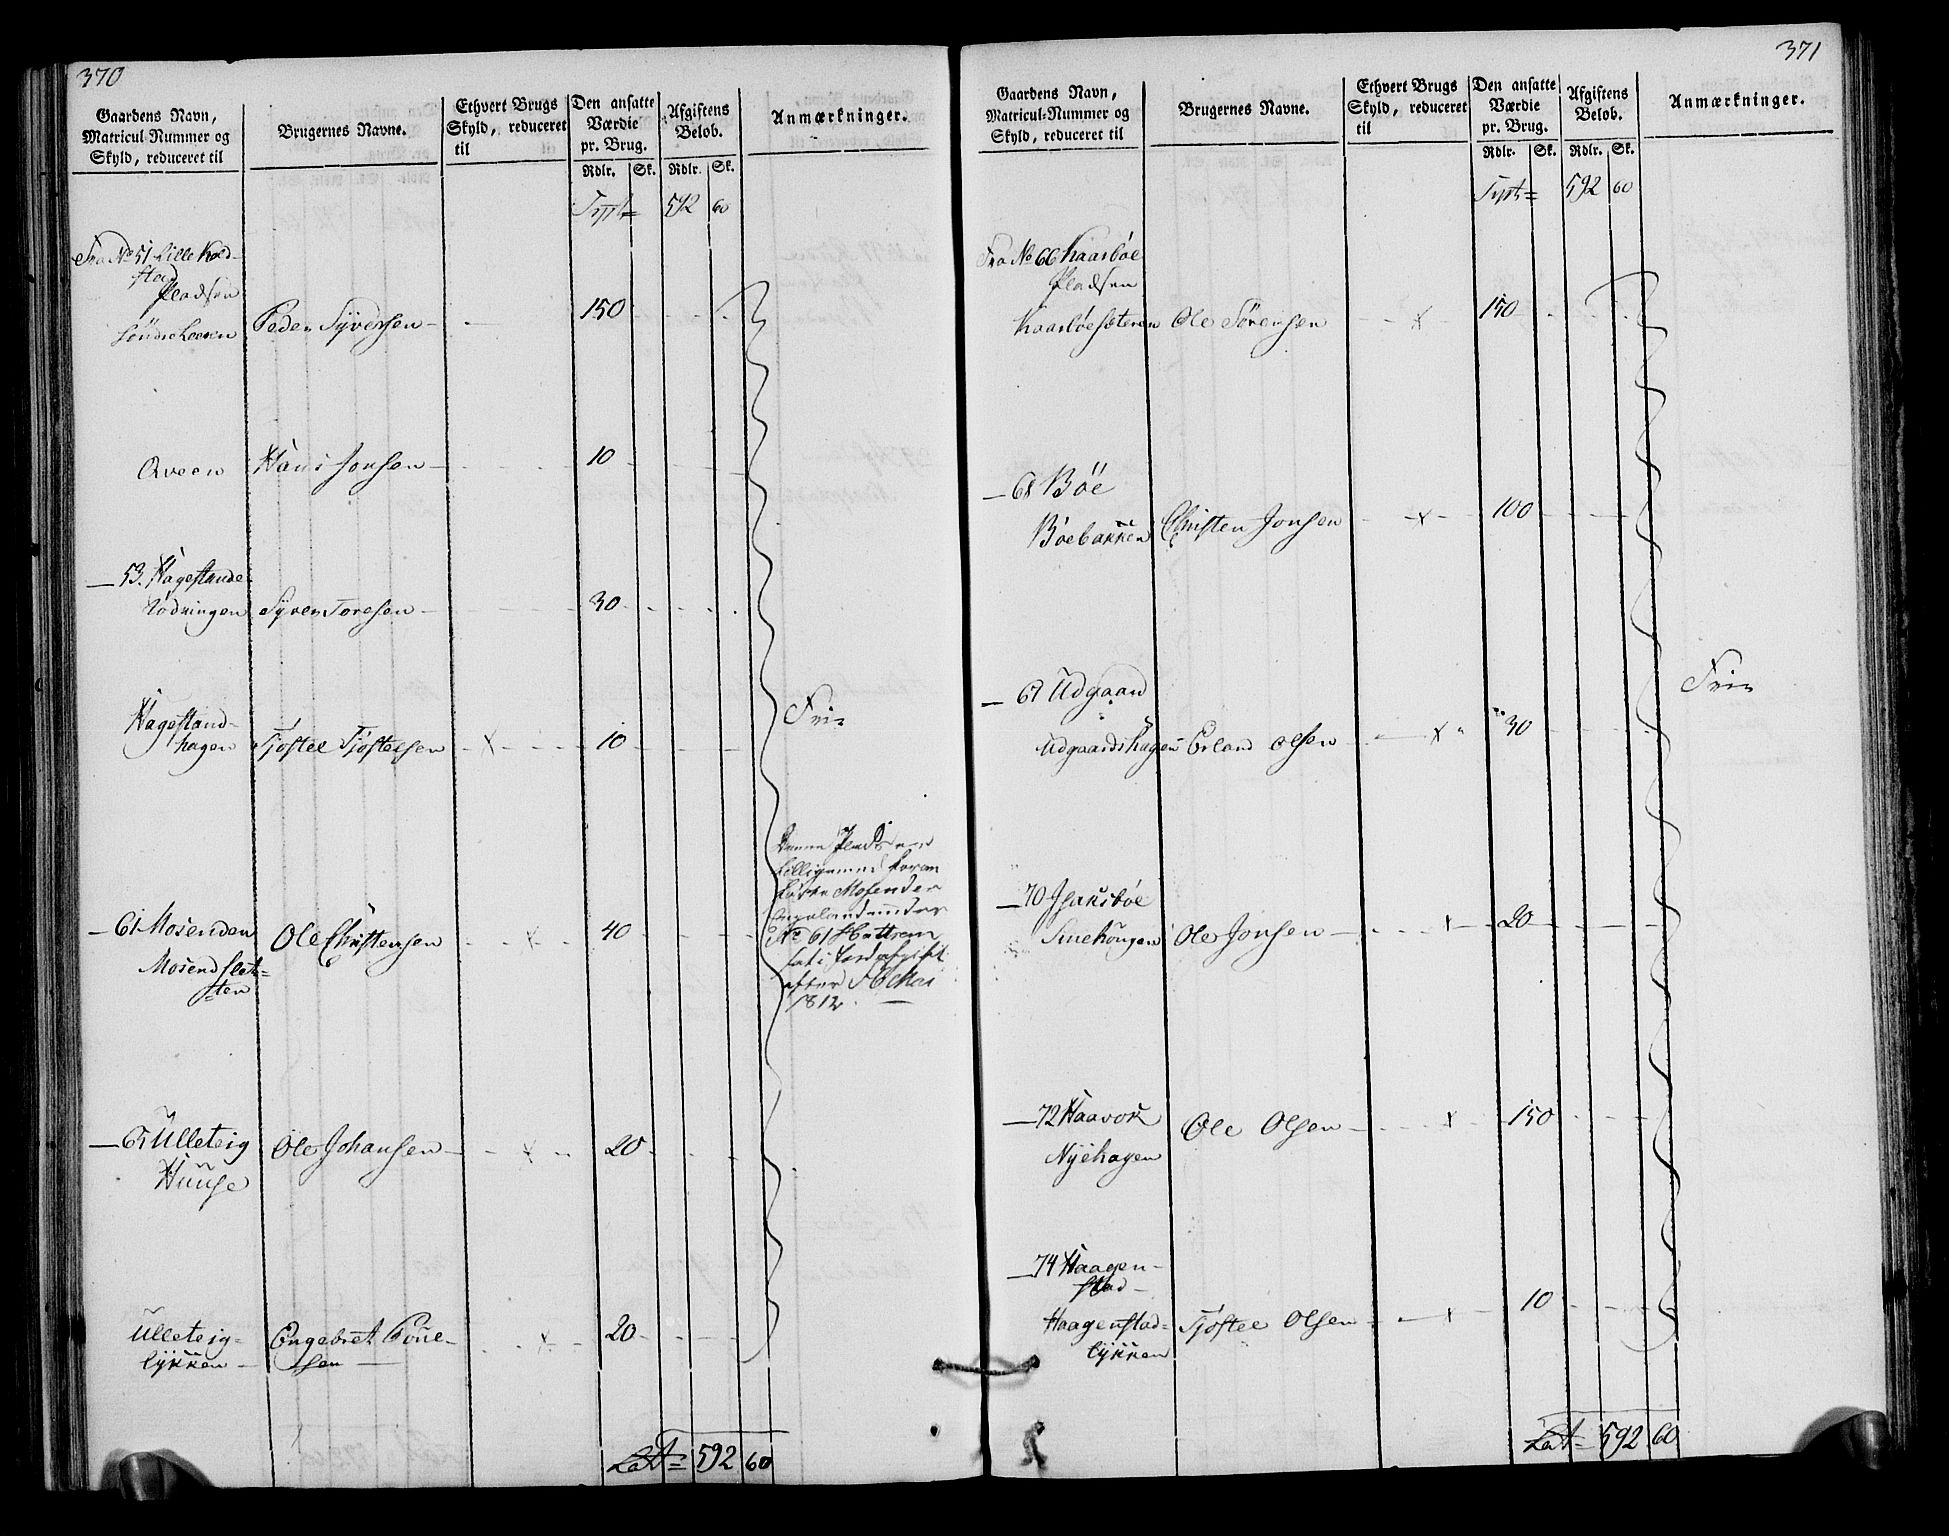 370
Gaardens Navn,
Matricul-Nummer og
Skyld, reduceret til
Brugernes Navne.
Ethvert Brugs
Skyld, reduceret
til
Den ansatte
Værdie
pr. Brug.
Rdlr. Sk.
Afgiftens
Beløb.
Rdlr. Sk.
Anmærkninger.
592 60
Fra No 51 Lille
stad
Pladsen
Peder Syversen 150
Qveen Hans Jonsen 10
53. Hagestande
Rødningen Syver Toresen 30
Hagestand-
hagen Tjøstel Tjøstelsen x 10 Frie
61 Mosenden Ole Christensen x 40
Mosend slet-
ten
Denne Pladsen
No 61
1812
65 Ulleteig Ole Johansen x 20
Huuse
Ulleteig- Engebret Poul- x 20
lykken sen
Lat 592 60
371
Gaardens Navn,
Matricul-Nummer og
Skyld, reduceret til
Brugernes Navne.
Ethvert Brugs
Skyld, reduceret
til
Den ansatte
Værdie
pr. Brug.
Rdlr. Sk.
Afgiftens
Beløb.
Rdlr. Sk.
Anmærkninger.
592 60
Fra No 66 Kaasbøe
Pladsen
Kaasbøesæteren Ole Sørensen x 150
68 Bøe
Bøebakken Christen Jonsen x 100
67 Udgaard Frie
Udgaardshagen Erland Olsen x 30
70 Isaksbøe
Ole Jonsen x 20
72 Haavok Ole Olsen x 150
Nyehagen
74 Haagen-
stad
Haagenstad- Tjøstel Olsen x 10
lykken
Lat 592 60